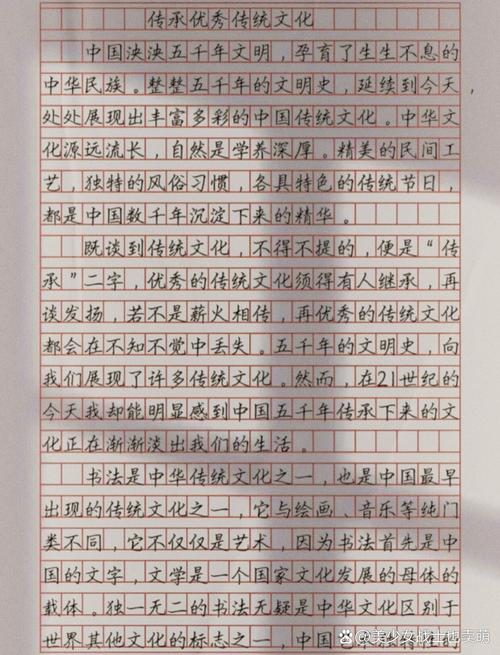 传承优秀传统文化
中国泱泱五千年文明，孕育了生生不息的
中华民族。整整五千年的文明史，延续到今天，
处处展现出丰富多彩的中国传统文化。中华文
化源远流长，自然是学养深厚。精美的民间工
艺，独特的风俗习惯，各具特色的传统节日，
都是中国数千年沉淀下来的精华。
既谈到传统文化，不得不提的，便是“传
承”二字，优秀的传统文化须得有人继承，再
谈发扬，若不是薪火相传，再优秀的传统文化
都会在不知不觉中丢失。五千年的文明史，向
我们展现了许多传统文化。然而，在21世纪的
今天我却能明显感到中国五千年传承下来的文
化正在渐渐淡出我们的生活。
书法是中华传统文化之一，也是中国最早
出现的传统文化之一，它与绘画、音乐等纯门
类不同，它不仅仅是艺术，因为书法首先是中
国的文字，文学是一个国家文化发展的母体的
载体。独一无二的书法无疑是中华文化区别于
世界其他文化的标志之一，中国艺术独特性的
@美少女战士也卖萌